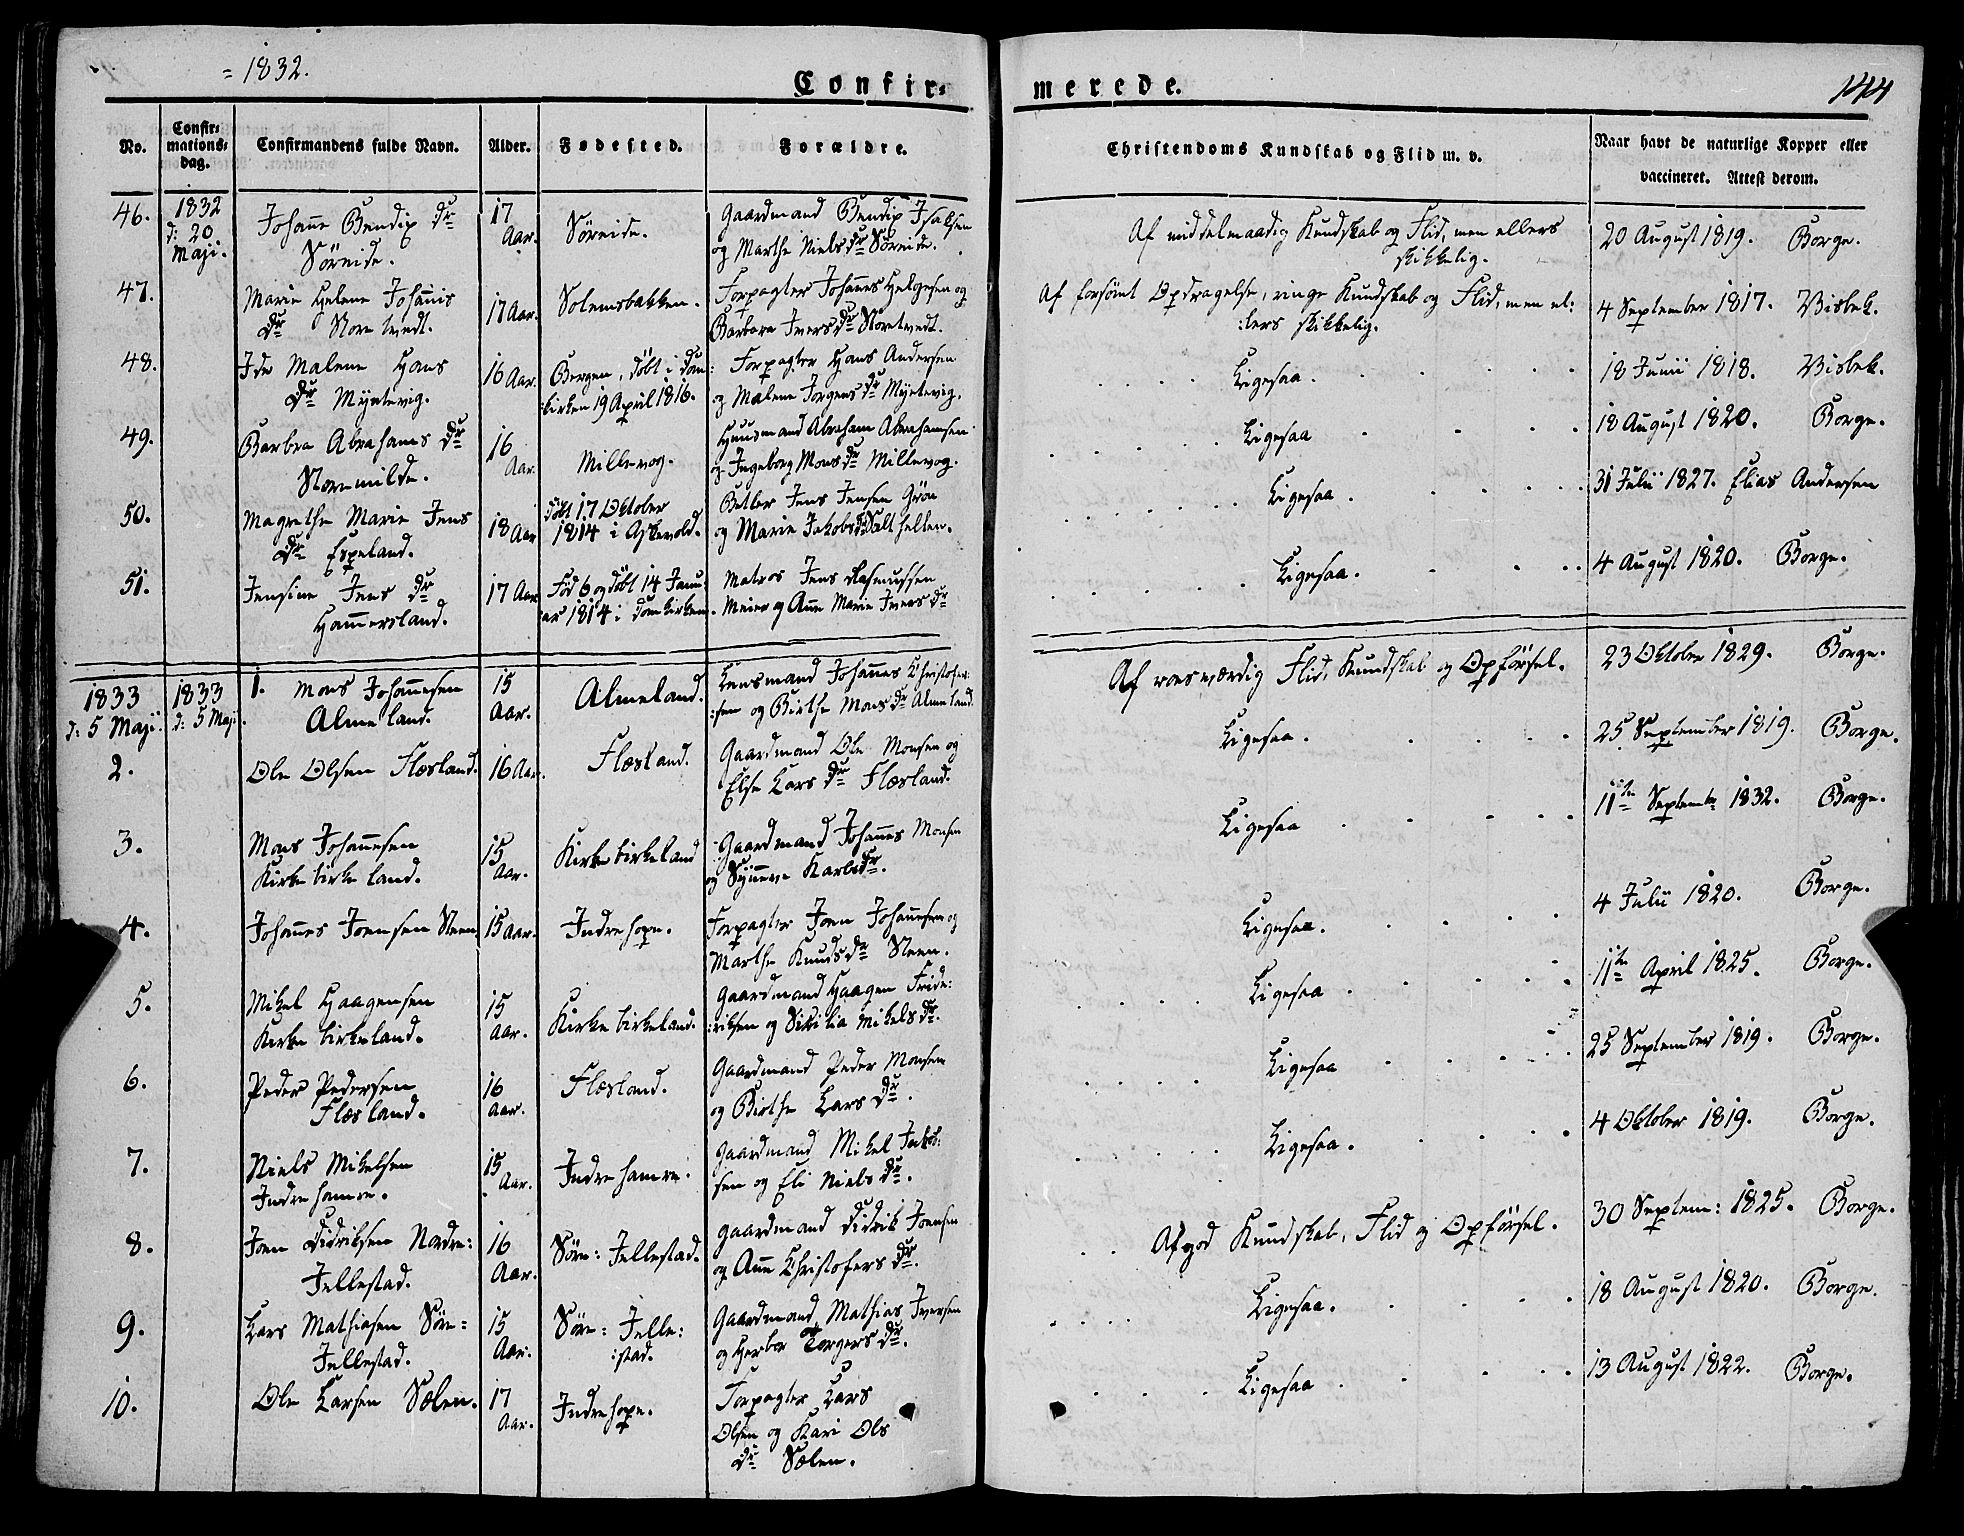 = 1832.
Confir-
merede.
144
No.
Confir-
mations-
dag.
Confirmandens fulde Navn.
Alder.
Fødested.
Forældre.
Christendoms Kundskab og Flid m. v.
Naar havt de naturlige Kopper eller
vaccineret. Attest derom.
46.
1832
d: 20
Maji.
Johanne Bendix Dr
Söreide.
17
Aar.
Söreide.
Gaardmand Bendix
og Marthe Niels Dr Söreide.
Af middelmaadig Kundskab og Flid, men ellers
skikkelig.
20 August 1819. Borge.
47.
Marie Helene Johannis
Dr Storetvedt.
17 Aar.
Solemsbakken.
Forpagter Johannes Helgesen og
Barbara Ivers Dr Storetvedt.
Af forsömt Opdragelse, ringe Kundskab og Flid, men el:
:lers skikkelig.
4 September 1817. Visbek.
48.
Ide Malene Hans
Dr Myrtevig.
16 Aar.
Bergen, döbt i Dom:
:kirken 19 April 1816.
Forpagter Hans Andersen
og Malene Jorgens Dr Myrtevig.
Ligesaa.
18 Junii 1818. Visbek.
49.
Barbra Abrahams Dr
Storemilde.
16
Aar.
Millevog.
Huusmand Abraham Abrahamsen
og Ingeborg Mons Dr Millevog.
Ligesaa
18 August 1820. Borge.
50.
Magrethe Marie Jens
Dr Espeland.
18 Aar
Döbt 17 Oktober
1814 i Askevold.
Betler Jens Jensen Grön
og Marie Jakobs Dr Salthellen.
Ligesaa.
31 Julii 1827. Elias Andersen
51.
Jensine Jens Dr
Hammersland.
17 Aar
Föd 6 og döbt 14 Janu:
ar 1814 i Domkirken.
Matros Jens Rasmussen
Meier og Anne Marie Ivers Dr
Ligesaa.
4 August 1820. Borge.
1833
d: 5 Maji.
1833
d: 5 Maji.
1. Mons Johannesen
Almeland.
15
Aar.
Almeland.
Lensmand Johannes Christofer:
:sen og Birthe Mons Dr Almeland.
Af roesværdig Flid, Kundskab og Opförsel.
23 Oktober 1829. Borge.
2.
Ole Olsen Flæsland.
16 Aar.
Flæsland.
Gaardmand Ole Monsen og
Else Lars Dr Flæsland.
Ligesaa.
25 September 1819. Borge.
3.
Mons Johannesen
Kirkebirkeland.
15
Aar.
Kirkebirkeland
Gaardmand Johannes Monsen
og Synneve Karls Dr.
Ligesaa
11te Septembr 1832. Borge.
4.
Johannes Joensen Steen
15 Aar.
Indrehope.
Forpagter Joen Johannesen og
Marthe Knuds Dr Steen.
Ligesaa.
4 Julii 1820. Borge.
5.
Mikel Haagensen
Kirkebirkeland.
15
Aar.
Kirkebirkeland.
Gaardmand Haagen Fride:
:riksen og Sisilia Mikels Dr.
Ligesaa
11te April 1825. Borge.
6.
Peder Pedersen
Flæsland.
16
Aar.
Flæsland.
Gaardmand Peder Monsen
og Birthe Lars Dr.
Ligesaa
25 September 1819. Borge.
7.
Niels Mikelsen
Indrehamre.
15
Aar.
Indrehamre.
Gaardmand Mikel Jakob:
sen og Eli Niels Dr.
Ligesaa.
4 Oktober 1819. Borge.
8.
Joen Didriksen Nordre:
Jellestad.
16
Aar.
Söre: Jellestad.
Gaardmand Didrik Joensen
og Anne Christofers Dr.
Af god Kundskab, Flid og Opförsel.
30 Septem: 1825. Borge.
9.
Lars Mathiasen Söre=
Jellestad.
15
Aar.
Söre: Jelle:
:stad.
Gaardmand Mathias Iversen
og Herbor Torgers Dr.
Ligesaa.
18 August 1820. Borge.
10.
Ole Larsen Sælen.
17
Aar.
Indrehope.
Forpagter Lars
Olsen og Kari Ols
Dr Sælen.
Ligesaa
13 August 1822. Borge.